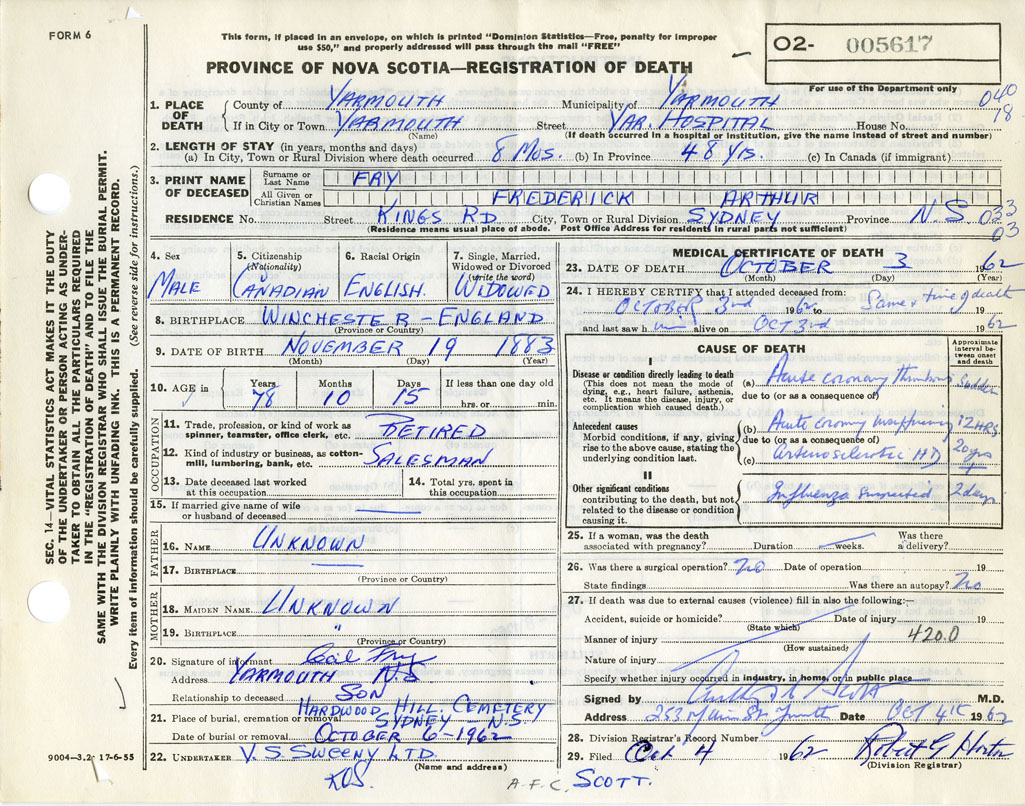 FORM 6
This form, if placed in an envelope, on which is printed "Dominion Statistics—Free, penalty for improper
use $50," and properly addressed will pass through the mail "FREE"
O2- 005617
For use of the Department only
PROVINCE OF NOVA SCOTIA—REGISTRATION OF DEATH
040
78
1. PLACE OF DEATH
County of YARMOUTH Municipality of YARMOUTH
If in City or Town YARMOUTH Street YAR. HOSPITAL House No.
(Name) (If death occurred in a hospital or institution, give the name instead of street and number)
2. LENGTH OF STAY (in years, months and days)
(a) In City, Town or Rural Division where death occurred 8 MOS. (b) In Province 48 YRS. (c) In Canada (if immigrant)
3. PRINT NAME OF DECEASED
Surname or Last Name FRY
All Given or Christian Names FREDERICK ARTHUR
RESIDENCE No. Street KINGS RD City, Town or Rural Division SYDNEY Province N.S 033
03
(Residence means usual place of abode. Post Office Address for residents in rural parts not sufficient)
4. Sex MALE
5. Citizenship (Nationality) CANADIAN
6. Racial Origin ENGLISH.
7. Single, Married, Widowed or Divorced (write the word) WIDOWED
8. BIRTHPLACE WINCHESTER - ENGLAND
(Province or Country)
9. DATE OF BIRTH NOVEMBER 19 1883
(Month) (Day) (Year)
10. AGE in Years 78 Months 10 Days 15 If less than one day old
hrs. or min.
OCCUPATION
11. Trade, profession, or kind of work as spinner, teamster, office clerk, etc. RETIRED
12. Kind of industry or business, as cotton-mill, lumbering, bank, etc. SALESMAN
13. Date deceased last worked at this occupation
14. Total yrs. spent in this occupation
15. If married give name of wife or husband of deceased
FATHER
16. NAME UNKNOWN
17. BIRTHPLACE
(Province or Country)
MOTHER
18. MAIDEN NAME UNKNOWN
19. BIRTHPLACE "
(Province or Country)
20. Signature of informant Fry
Address YARMOUTH N.S
Relationship to deceased SON
21. Place of burial, cremation or removal HARDWOOD HILL. CEMETERY
SYDNEY - N.S
Date of burial or removal OCTOBER 6-1962
22. UNDERTAKER V.S SWEENY LTD.
(Name and address)
MEDICAL CERTIFICATE OF DEATH
23. DATE OF DEATH OCTOBER 3 1962
(Month) (Day) (Year)
24. I HEREBY CERTIFY that I attended deceased from:
OCTOBER 3rd 1962 to Same & time of death 19
and last saw him alive on OCT 3rd 1962
CAUSE OF DEATH
Approximate interval between onset and death
I
Disease or condition directly leading to death
(This does not mean the mode of dying, e.g., heart failure, asthenia, etc. It means the disease, injury, or complication which caused death.)
(a) Acute coronary thrombosis Sudden
due to (or as a consequence of)
Antecedent causes
Morbid conditions, if any, giving rise to the above cause, stating the underlying condition last.
(b) Acute coronary insufficiency 12 HRS
due to (or as a consequence of)
(c) Arteriosclerotic HD 20 yrs
II
Other significant conditions
contributing to the death, but not related to the disease or condition causing it.
Influenza suspected 2 days
25. If a woman, was the death associated with pregnancy? Duration weeks. Was there a delivery?
26. Was there a surgical operation? No Date of operation 19
State findings Was there an autopsy? No
27. If death was due to external causes (violence) fill in also the following:—
Accident, suicide or homicide? Date of injury 19
(State which)
420.0
Manner of injury
(How sustained)
Nature of injury
Specify whether injury occurred in industry, in home, or in public place
Signed by Scott M.D.
Address 253 Main St Yarmouth Date OCT 4th 1962
28. Division Registrar's Record Number
29. Filed Oct 4 1962 Robert G Horton
(Division Registrar)
A.F.C. SCOTT.
SEC. 14—VITAL STATISTICS ACT MAKES IT THE DUTY
OF THE UNDERTAKER OR PERSON ACTING AS UNDER-
TAKER TO OBTAIN ALL THE PARTICULARS REQUIRED
IN THE "REGISTRATION OF DEATH" AND TO FILE THE
SAME WITH THE DIVISION REGISTRAR WHO SHALL ISSUE THE BURIAL PERMIT.
WRITE PLAINLY WITH UNFADING INK. THIS IS A PERMANENT RECORD.
Every item of information should be carefully supplied. (See reverse side for instructions.)
9004—3.2: 17-6-55